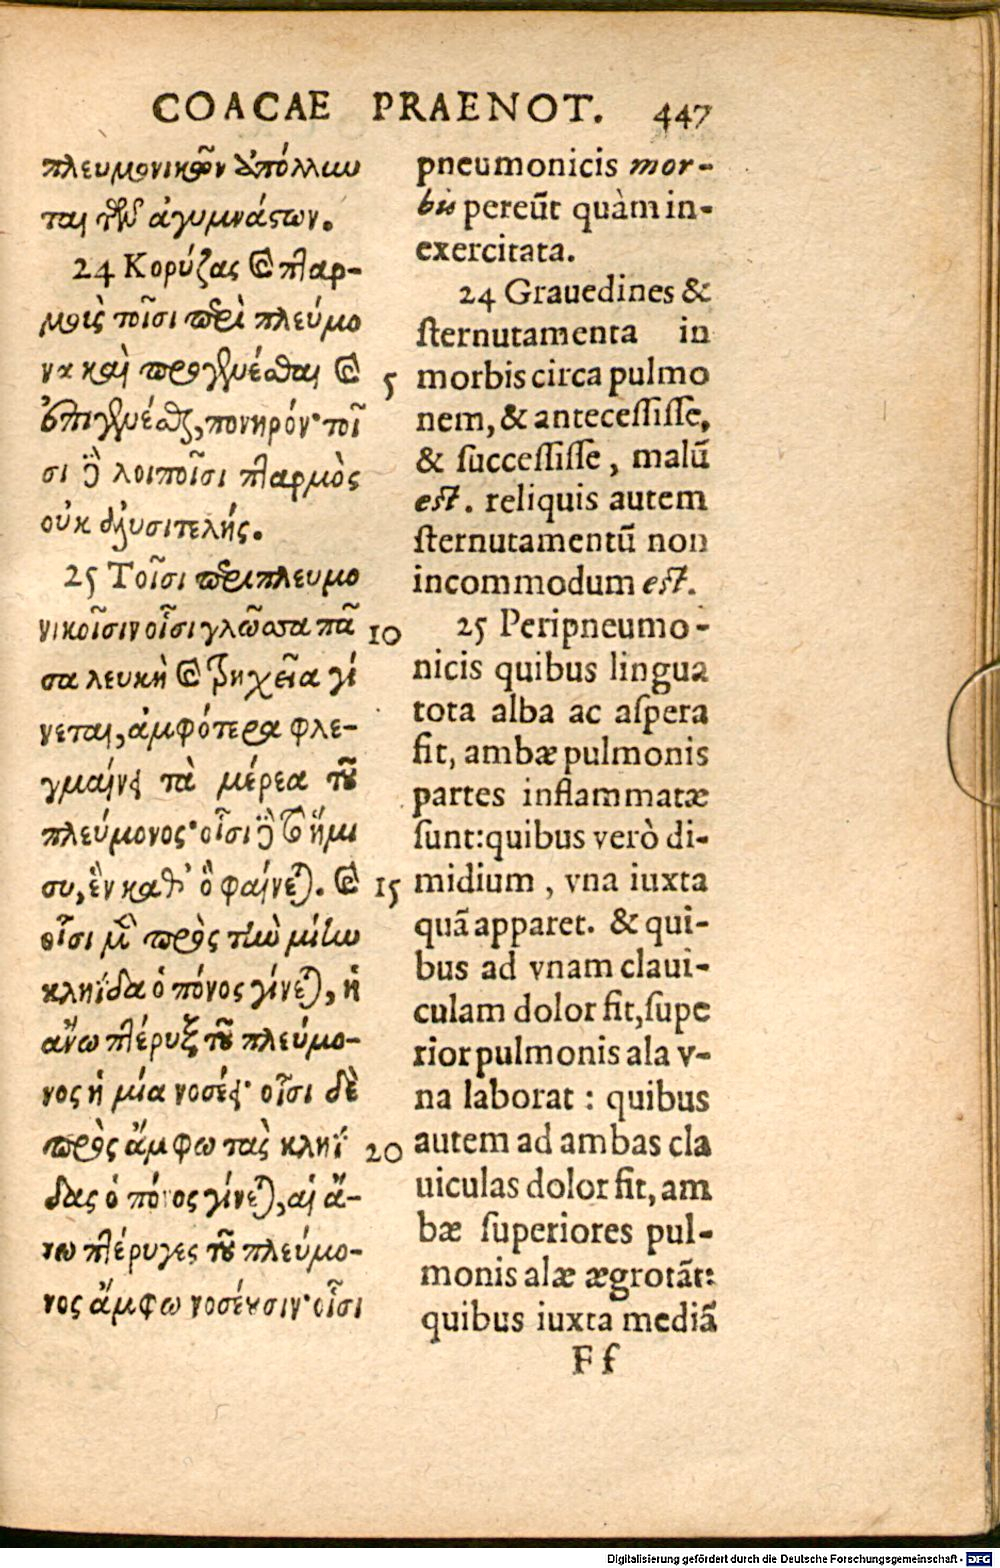 COACAE PRAENOT. 447
πλευμονικῶν ἀπόλλυν
ται τῶν ἀγυμνάστων.
24 Κορύζας καὶ πταρ-
μοὺς τοῖσι περὶ πλεύμο
να καὶ προγεγενέσθαι καὶ
ἐπιγενέσθαι, πονηρόν· τοῖ
σι δὲ λοιποῖσι πταρμὸς
οὐκ ἀλυσιτελής.
25 Τοῖσι περιπλευμο
νικοῖσιν οἷσι γλῶσσα πᾶ
σα λευκὴ καὶ τρηχεῖα γί
νεται, ἀμφότερα φλε-
γμαίνει τὰ μέρεα τοῦ
πλεύμονος· οἷσι δὲ τὸ ἥμι
συ, ἓν καθ' ὃ φαίνεται. καὶ
οἷσι μὲν πρὸς τὴν μίην
κληΐδα ὁ πόνος γίνεται, ἡ
ἄνω πτέρυξ τοῦ πλεύμο-
νος ἡ μία νοσέει· οἷσι δὲ
πρὸς ἄμφω τὰς κληΐ
δας ὁ πόνος γίνεται, αἱ ἄ-
νω πτέρυγες τοῦ πλεύμο-
νος ἄμφω νοσέουσιν· οἷσι
5
10
15
20
pneumonicis mor-
bis pereūt quàm in-
exercitata.
24 Grauedines &
sternutamenta in
morbis circa pulmo
nem, & antecessisse,
& successisse, malū
est. reliquis autem
sternutamentū non
incommodum est.
25 Peripneumo-
nicis quibus lingua
tota alba ac aspera
fit, ambæ pulmonis
partes inflammatæ
sunt: quibus verò di-
midium, vna iuxta
quā apparet. & qui-
bus ad vnam claui-
culam dolor fit, supe
rior pulmonis ala v-
na laborat: quibus
autem ad ambas cla
uiculas dolor fit, am
bæ superiores pul-
monis alæ ægrotāt:
quibus iuxta mediā
F f
Digitalisierung gefördert durch die Deutsche Forschungsgemeinschaft - DFG